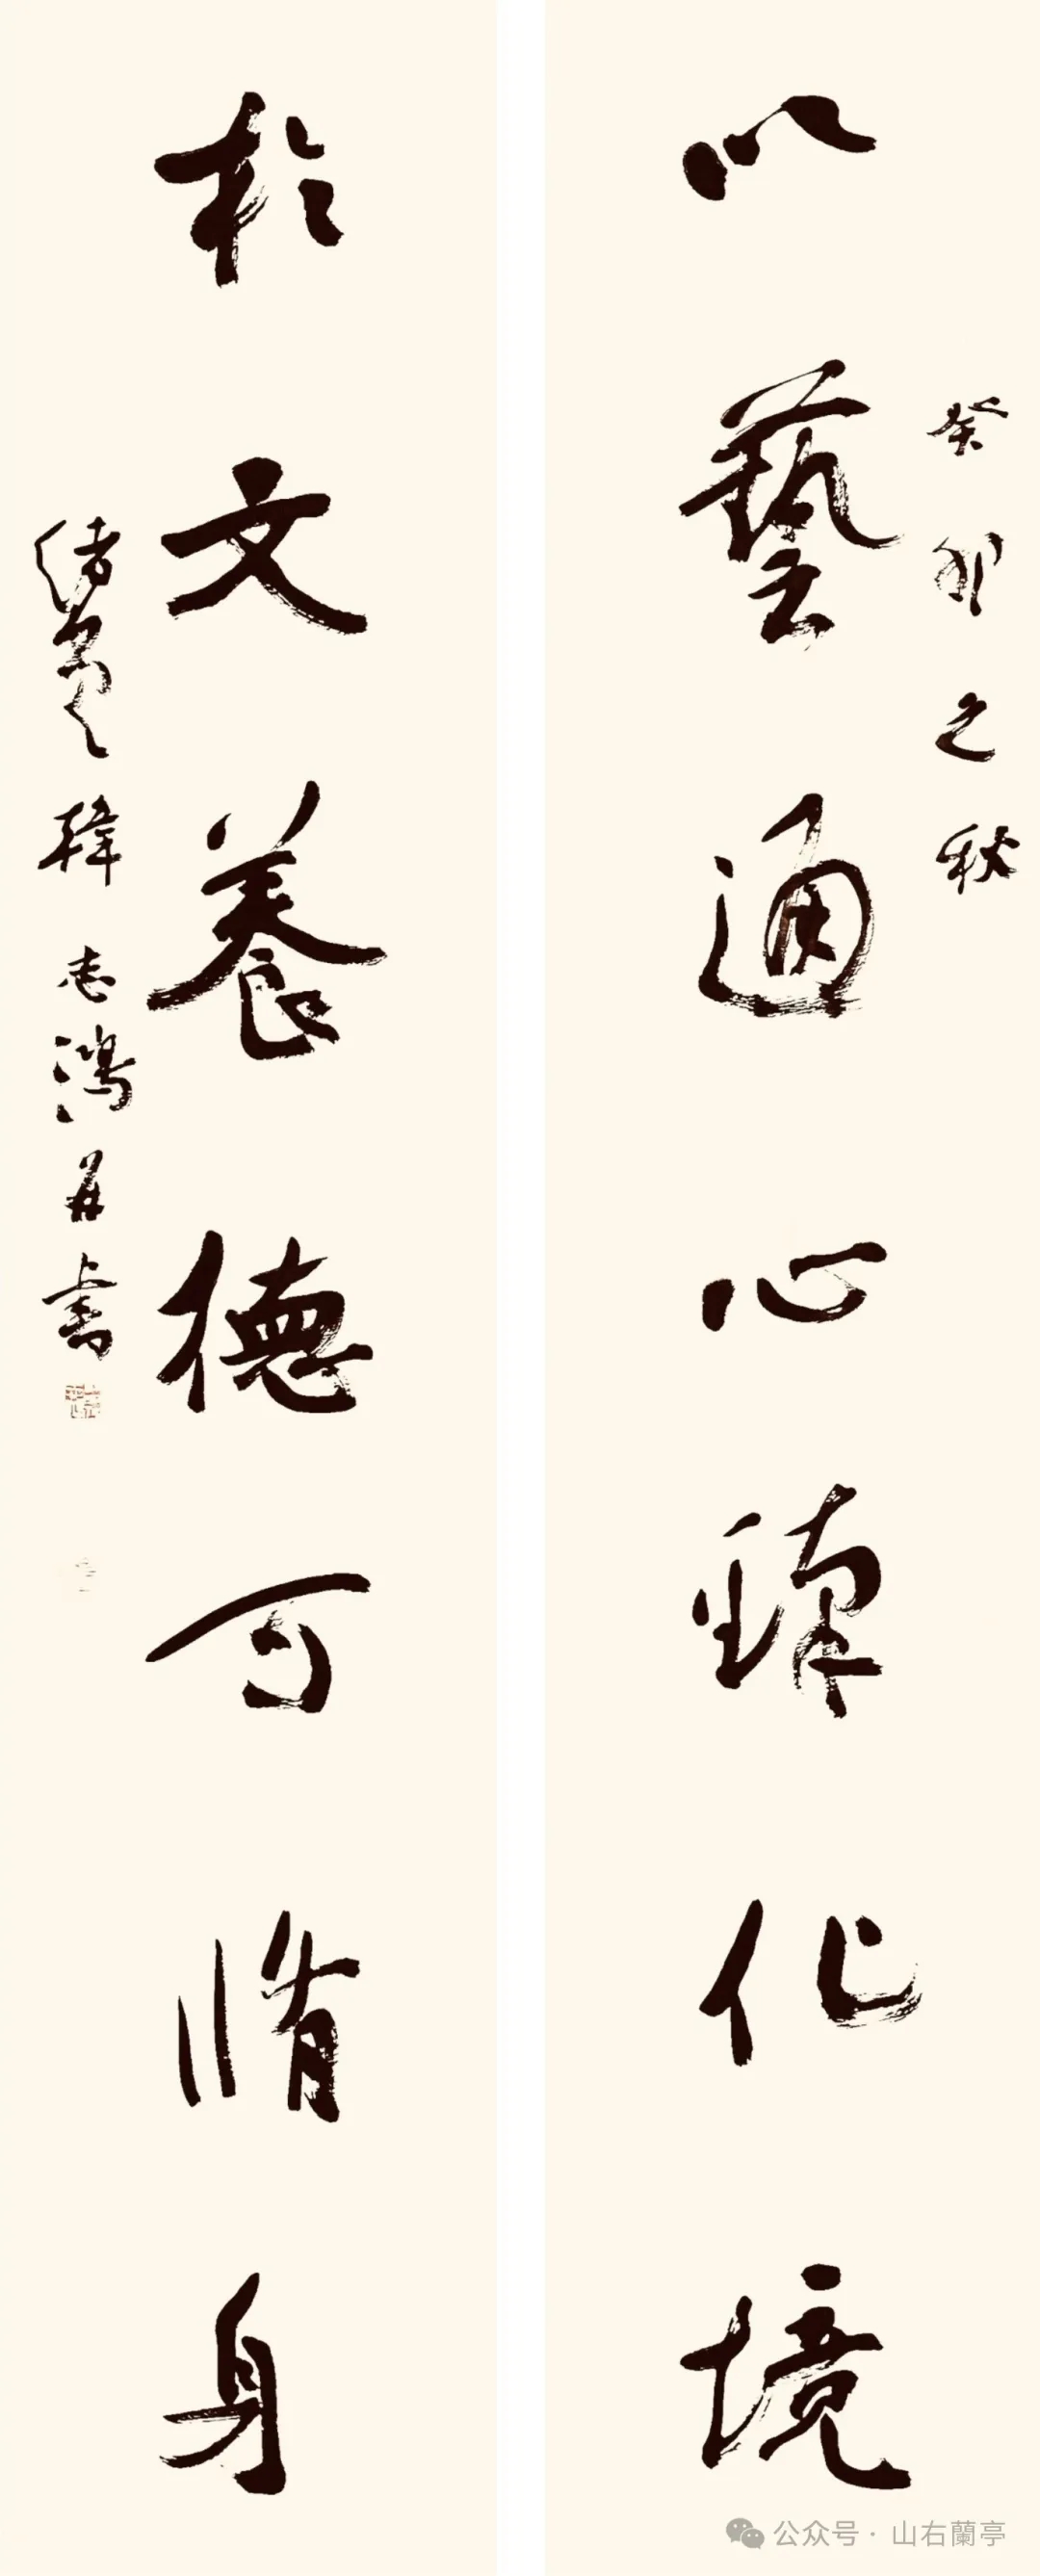 癸卯之秋
以藝通心臻化境
於文養德可脩身
韓志鴻并書
公众号 · 山右蘭亭